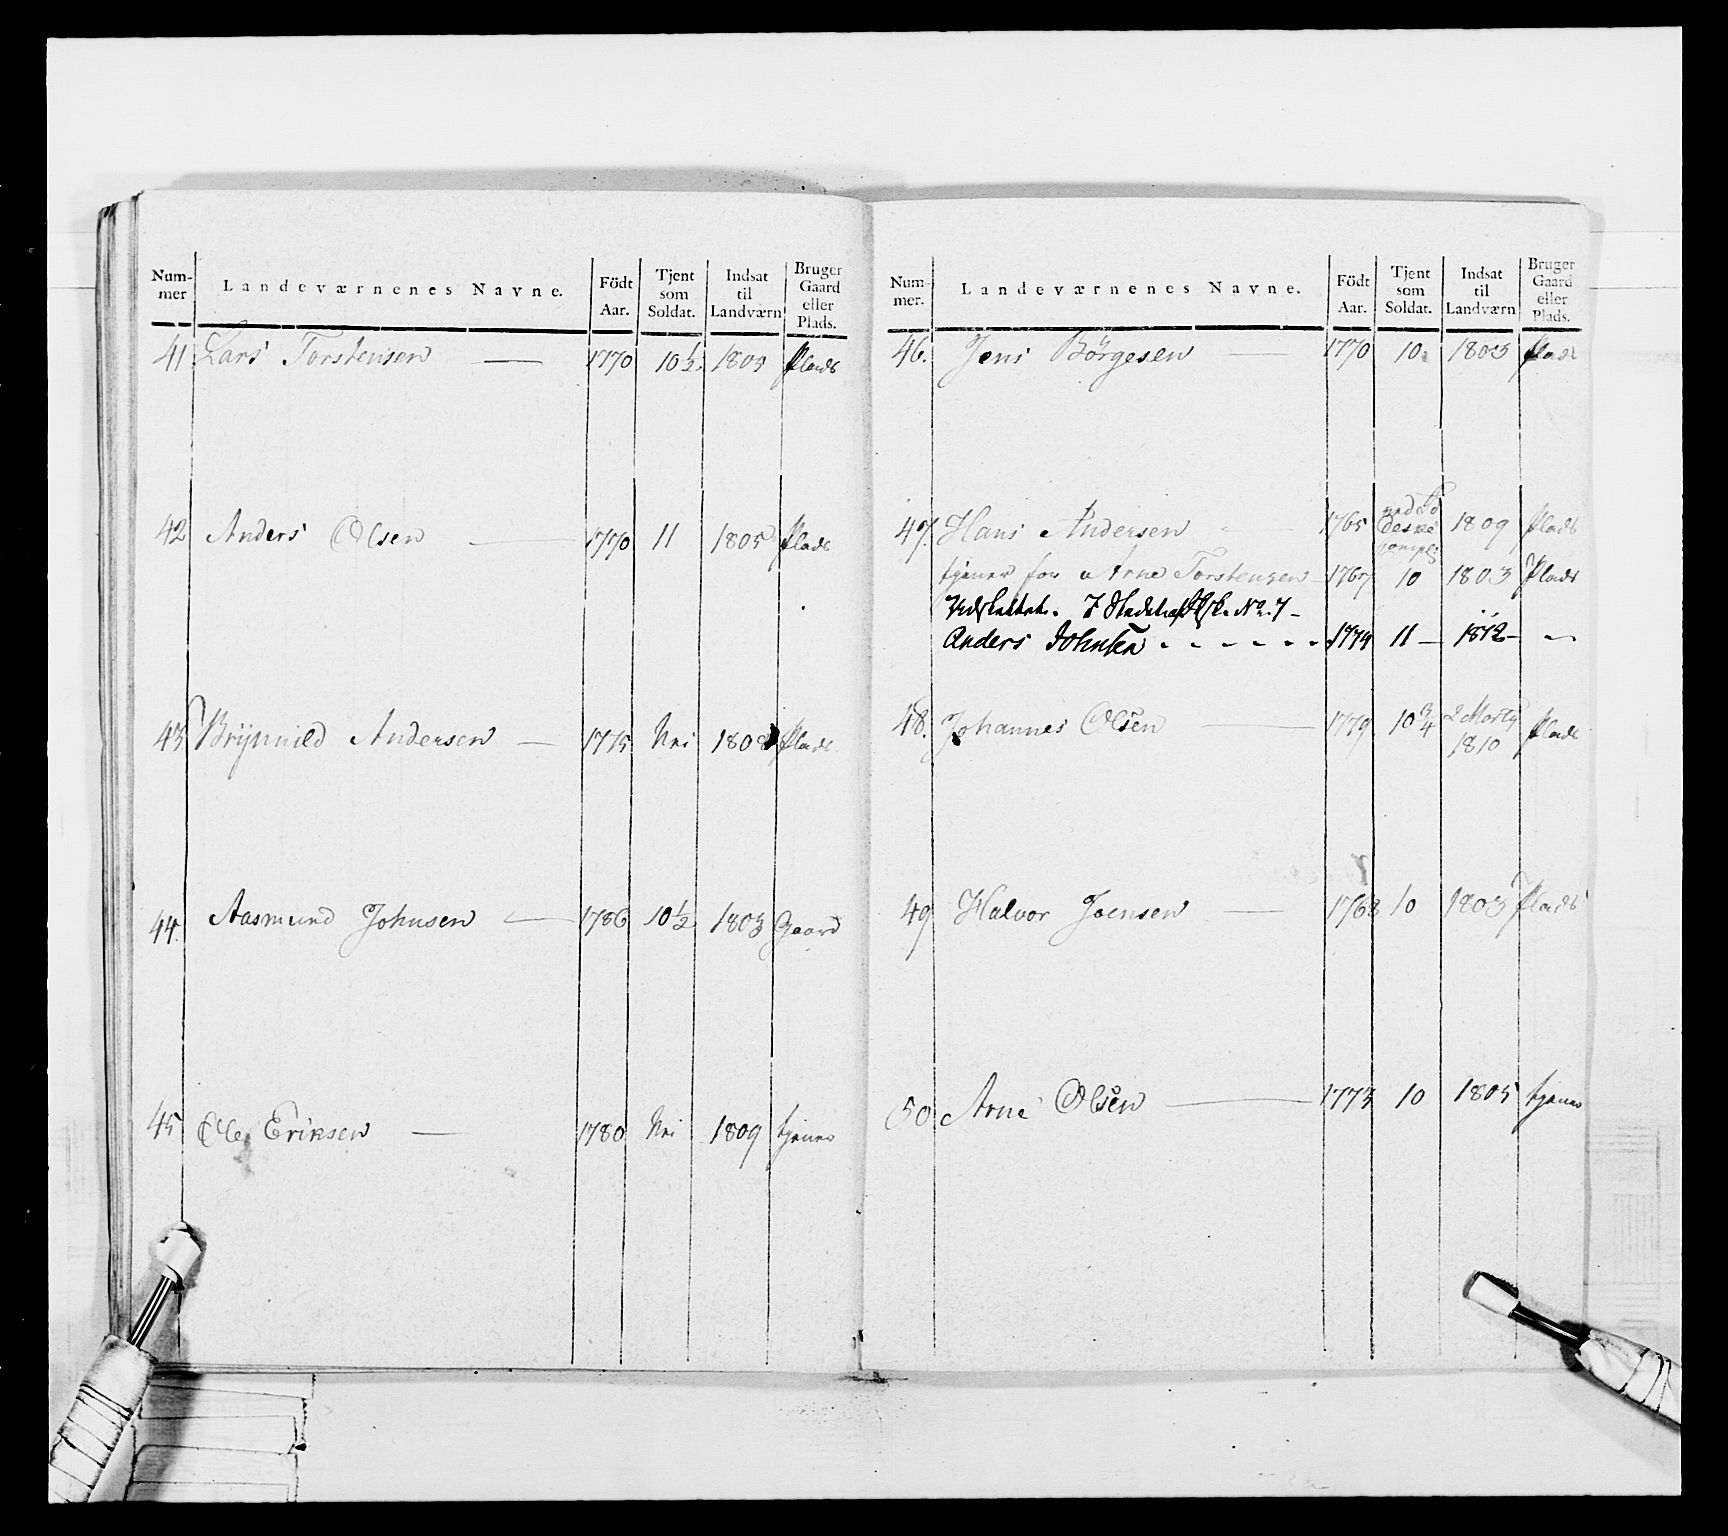 Num-
mer
Landeværnenes Navne.
Födt
Aar.
Tjent
som
Soldat.
Indsat
til
Landværn
Bruger
Gaard
eller
Plads.
41 Lars Torstensen — 1770 10½ 1803 Plads
42 Anders Olsen — 1770 11 1805 Plads
43 Brynnild Andersen — 1775 Nei 1808 Plads
44. Aasmund Johnsen — 1786 10½ 1803 Gaard
45 Ole Eriksen — 1780 Nei 1809 tjener
Num-
mer.
Landeværnenes Navne.
Födt
Aar.
Tjent
som
Soldat.
Indsat
til
Landværn
Bruger
Gaard
eller
Plads.
46. Jens Börgesen 1770 10 1803 Plads
47. Hans Andersen 1765 1809 Plads
tjener for Arne Torstensen 1767 10 1803 Plads
No. 7 –
Anders Johnsen 1774 11 – 1812 – –
48. Johannes Olsen — 1779 10¾ 1810 Plads
49 Halvor Joensen — 1768 10 1803 Plads
50 Arne Olsen — 1773 10 1805 tjener